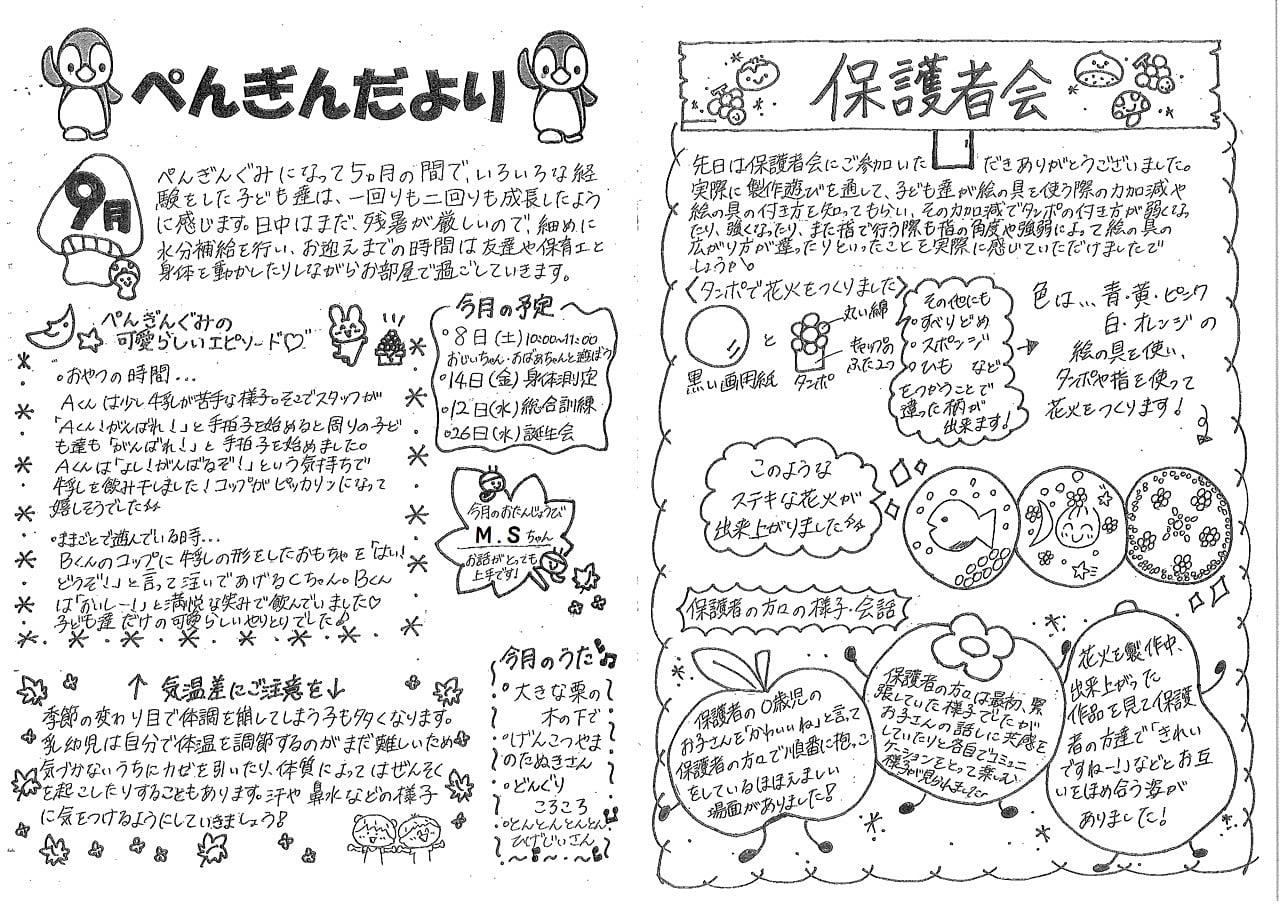 ぺんぎんだより
9月
ぺんぎんぐみになって5ヵ月の間で、いろいろな経
験をした子ども達は、一回りも二回りも成長したよう
に感じます。日中はまだ、残暑が厳しいので、細めに
水分補給を行い、お迎えまでの時間は友達や保育士と
身体を動かしたりしながらお部屋で過ごしていきます。
ぺんぎんぐみの
可愛らしいエピソード♡
・おやつの時間...
Aくんは少し牛乳が苦手な様子。そこでスタッフが
「Aくん!がんばれ!」と手拍子を始めると周りの子ど
も達も「がんばれ!」と手拍子を始めました。
Aくんは「よし!がんばるぞ!」という気持ちで
牛乳を飲み干しました!コップがピッカリンになって
嬉しそうでした
・ままごとで遊んでいる時...
Bくんのコップに牛乳の形をしたおもちゃを「はい!
どうぞ!」と言って注いであげるCちゃん。Bくん
は「おいしー!」と満悦な笑みで飲んでいました♡
子ども達だけの可愛らしいやりとりでした♪
今月の予定
・8日(土)10:00~11:00
おじいちゃん・おばあちゃんと遊ぼう
・14日(金)身体測定
・12日(水)総合訓練
・26日(水)誕生会
今月のおたんじょうび
M.Sちゃん
お話がとっても
上手です!
↑気温差にご注意を↓
季節の変わり目で体調を崩してしまう子も多くなります。
乳幼児は自分で体温を調節するのがまだ難しいため
気づかないうちにカゼを引いたり、体質によってはぜんそく
を起こしたりすることもあります。汗や鼻水などの様子
に気をつけるようにしていきましょう!
今月のうた
・大きな栗の
木の下で
・げんこつやま
のたぬきさん
・どんぐり
ころころ
・とんとんとんとん
ひげじいさん
保護者会
先日は保護者会にご参加いただきありがとうございました。
実際に製作遊びを通して、子ども達が絵の具を使う際の力加減や
絵の具の付き方を知ってもらい、その力加減でタンポの付き方が弱くなっ
たり、強くなったり、また指で行う際も指の角度や強弱によって絵の具の
広がり方が違ったりといったことを実際に感じていただけましたで
しょうか。
〈タンポで花火をつくりました〉
黒い画用紙
と
タンポ
丸い綿
キャップの
ふた2つ
その他にも
・すべりどめ
・スポンジ
・ひも など
をつかうことで
違った柄が
出来ます!
色は...青・黄・ピンク
白・オレンジの
絵の具を使い、
タンポや指を使って
花火をつくります!
このような
ステキな花火が
出来上がりました
保護者の方々の様子・会話
保護者の0歳児の
お子さんを「かわいいね」と言って
保護者の方々で順番に抱っこ
をしているほほえましい
場面がありました!
保護者の方々は最初、緊
張していた様子でしたが
お子さんの話しに共感を
していたりと各自でコミュニ
ケーションをとって楽しむ
様子が見られました
花火を製作中、
出来上がった
作品を見て保護
者の方達で「きれい
ですねー!」などとお互
いをほめ合う姿が
ありました!